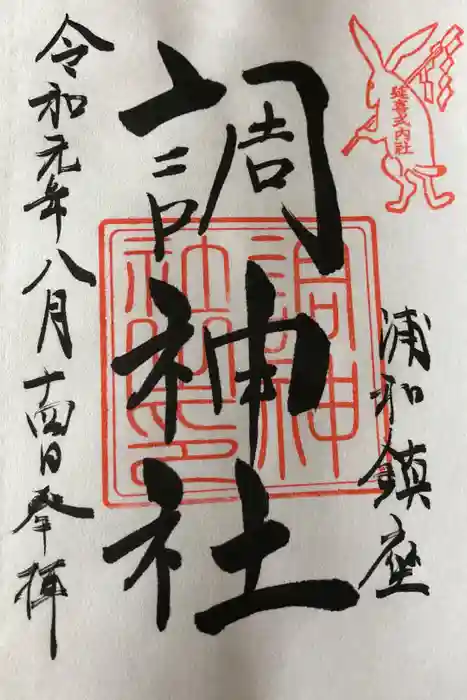 延喜式内社
浦和鎮座
調神社
調神社印
令和元年八月十四日奉拝